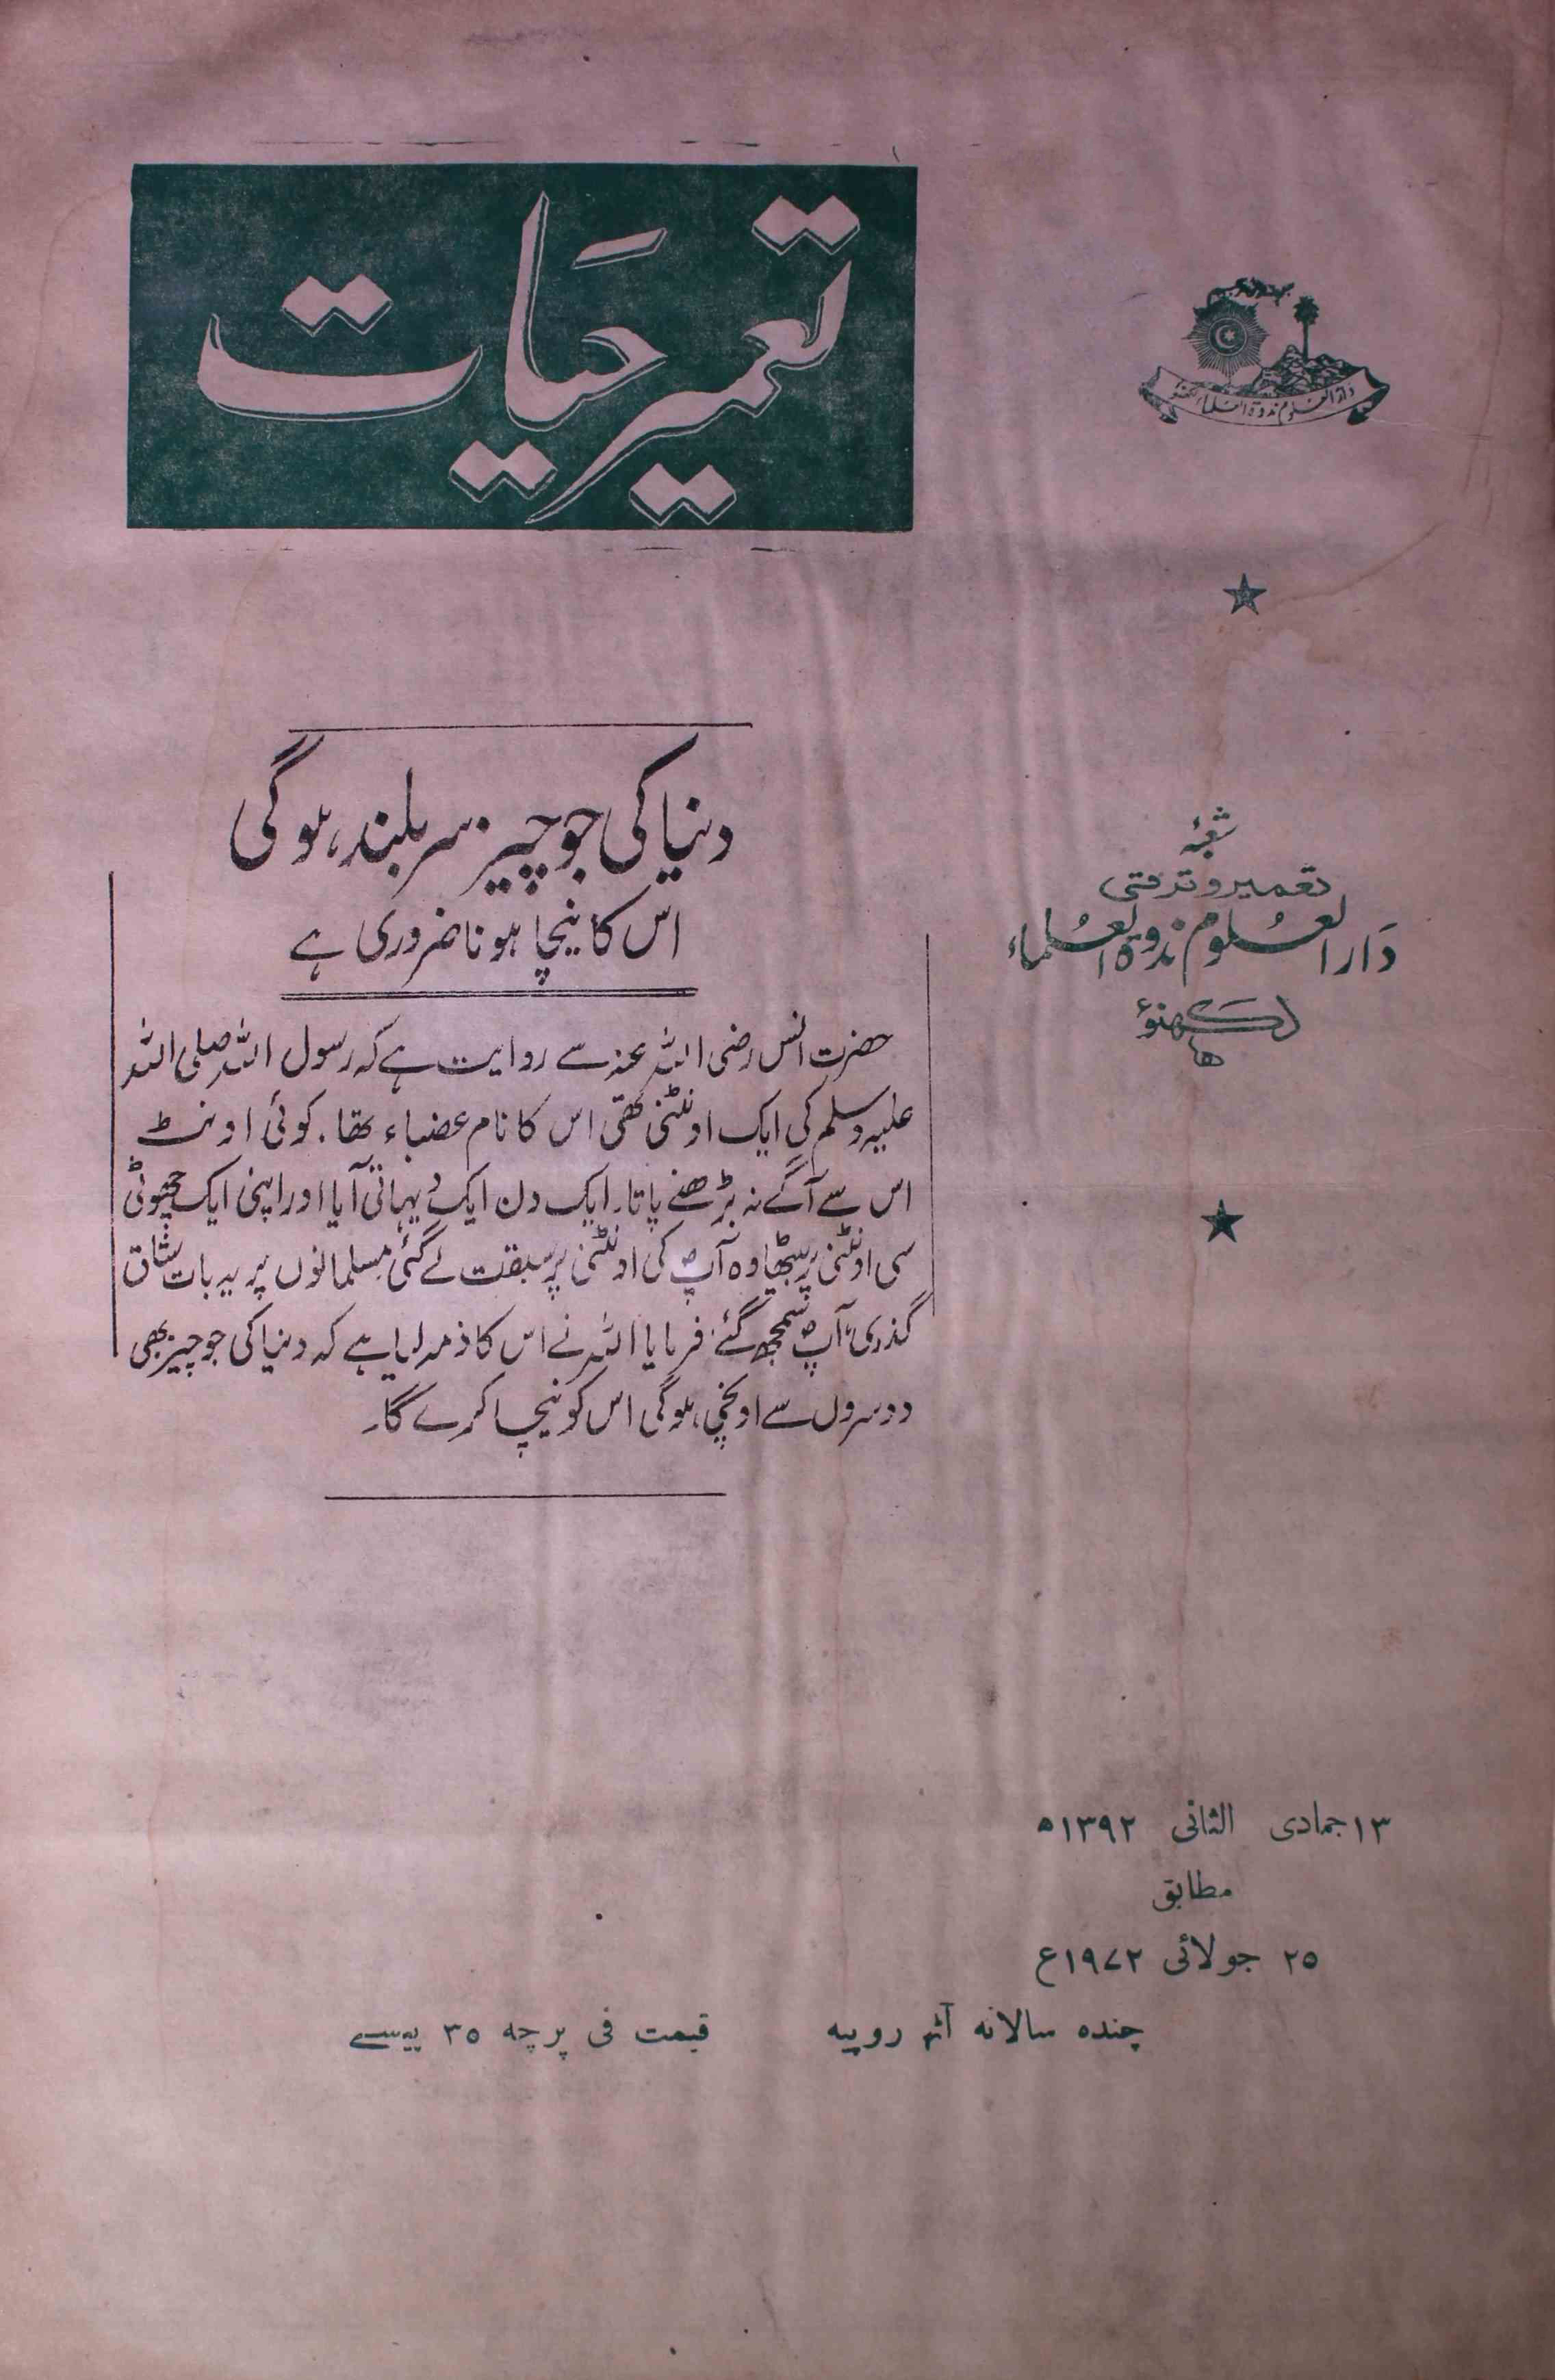 تعمیر حیات
دارالعلوم ندوۃ العلماء لکھنؤ
شعبۂ
تعمیر و ترقی
دَارالعُلوم ندوۃ العُلماء
لکھنؤ
دنیا کی جو چیز سر بلند ہوگی
اس کا نیچا ہونا ضروری ہے
حضرت انس رضی اللہ عنہ سے روایت ہے کہ رسول اللہ صلی اللہ
علیہ وسلم کی ایک اونٹنی تھی اس کا نام عضباء تھا۔ کوئی اونٹ
اس سے آگے نہ بڑھنے پاتا۔ ایک دن ایک دیہاتی آیا اور اپنی ایک چھوٹی
سی اونٹنی پر بیٹھا وہ آپؐ کی اونٹنی پر سبقت لے گئی مسلمانوں پر یہ بات شاق
گذری، آپؐ سمجھ گئے، فرمایا اللہ نے اس کا ذمہ لیا ہے کہ دنیا کی جو چیز بھی
دوسروں سے اونچی ہوگی اس کو نیچا کرے گا۔
۱۳ جمادی الثانی ۱۳۹۲ھ
مطابق
۲۵ جولائی ۱۹۷۲ع
چندہ سالانہ آٹھ روپیہ قیمت فی پرچہ ۳۵ پیسے